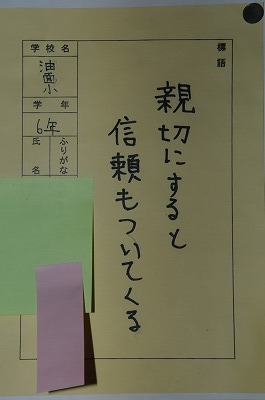 標語
親切にすると
信頼もついてくる
学校名
油面小
学年
6年
ふりがな
氏名